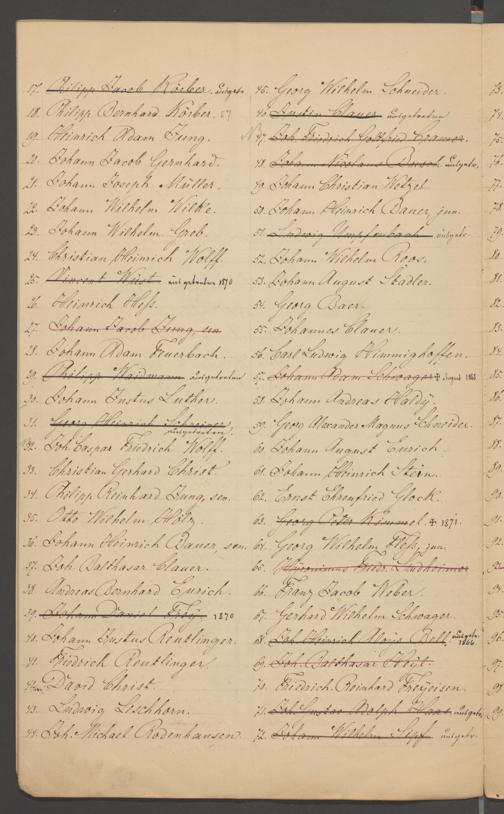 17. Philipp Jacob Körber.
18. Philipp Bernhard Körber. 57
19. Heinrich Adam Jung.
20. Johann Jacob Gernhard.
21. Johann Joseph Müller.
22. Johann Wilhelm Wilke.
23. Johann Wilhelm Greb.
24. Christian Heinrich Wolff
25. Vincent Wüst ausgetreten 1870
26. Heinrich Heß.
27. Johann Jacob Jung, sen
28. Johann Adam Feuerbach.
29. Philipp Waidmann ausgetreten
30. Johann Justus Luther.
31. Georg Heinrich Schreiner
ausgetreten.
32. Joh. Caspar Friedrich Wolff.
33. Christian Gerhard Christ.
34. Philipp Reinhard Jung, sen.
35. Otto Wilhelm Hölz.
36. Johann Heinrich Bauer, sen.
37. Joh. Balthaser Clauer.
38. Andreas Bernhard Eurich.
39. Johann Daniel 1870
40. Johann Justus Reutlinger.
41. Friedrich Reutlinger
42. David Christ.
43. Ludwig Leschhorn.
44. Joh. Michael Rodenhausen.
45. Georg Wilhelm Schneider.
46. Justin Clauer ausgetreten
47. Joh. Friedrich Gottfried Cramer.
48. Johann Nicolaus ausgetr.
49. Johann Christian Wetzel.
50. Johann Heinrich Bauer, jun.
51. Ludwig Umpfenbach ausgetr.
52. Johann Wilhelm Roos.
53. Johann August Stadler.
54. Georg Baer.
55. Johannes Clauer.
56. Carl Ludwig Himmighoffen.
57. Johann Adam Schwager ✝ August
58. Johann Andreas Haldy.
59. Georg Alexander Magnus Schneider.
60. Johann August Eurich.
61. Johann Heinrich Stein.
62. Ernst Ehrenfried Glock.
63. Georg Peter Kimmel. ✝ 1871.
64. Georg Wilhelm Heß, jun.
65. Hieronimus Lindheimer
66. Franz Jacob Weber.
67. Gerhard Wilhelm Schwager.
68. Joh. Heinrich Alois ausgetr.
1866
69. Joh. Balthasar
70. Friedrich Reinhard Freyeisen.
71. Joh. Gustav Adolph Haas ausgetr.
72. Johann Wilhelm ausgetr.